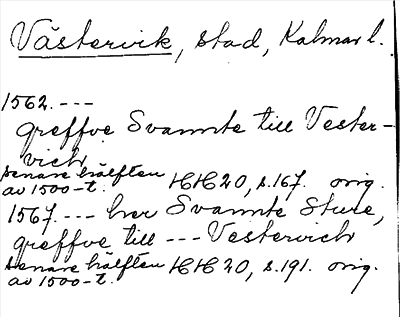 Västervik, stad, Kalmar l.
1562. ---
greffve Svannte till Vester-
vich
senare hälften
av 1500-t. HH 20, s. 167. orig.
1567. --- her Svannte Sture,
greffve till --- Vestervich
senare hälften HH 20, s. 191. orig.
av 1500-t.